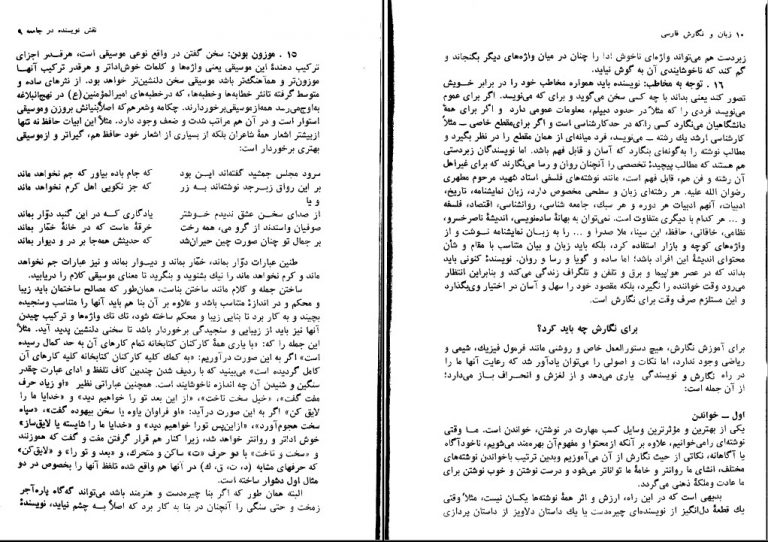 نقش نویسنده در جامعه ۹
۱۵ . موزون بودن: سخن گفتن در واقع نوعی موسیقی است، هرقدر اجزای
ترکیب دهندهٔ این موسیقی یعنی واژه‌ها و کلمات خوش‌اداتر و هرقدر ترکیب آنها
موزون‌تر و هماهنگ‌تر باشد موسیقی سخن دلنشین‌تر خواهد بود. از نثرهای ساده و
متوسط گرفته تانثر خطابه‌ها وخطبه‌ها، که درخطبه‌های امیرالمؤمنین (ع) در نهج‌البلاغه
به‌اوج‌می‌رسد همه‌ازموسیقی‌برخوردارند. چکامه وشعرهم‌که اصلاًبنیانش بروزن وموسیقی
استوار است و در آن هم مراتب شدت و ضعف وجود دارد. مثلاً این ابیات حافظ نه تنها
ازبیشتر اشعار همهٔ شاعران بلکه از بسیاری از اشعار خود حافظ هم، گیراتر و ازموسیقی
بهتری برخوردار است:
سرود مجلس جمشید گفته‌اند این بود که جام باده بیاور که جم نخواهد ماند
بر این رواق زبرجد نوشته‌اند به زر که جز نکویی اهل کرم نخواهد ماند
و یا
از صدای سخن عشق ندیدم خوشتر یادگاری که در این گنبد دوّار بماند
صوفیان واستدند از گرو می، همه رخت خرقهٔ ماست که در خانهٔ خمّار بماند
بر جمال تو چنان صورت چین حیران‌شد که حدیثش همه‌جا بر در و دیوار بماند
طنین عبارات دوّار بماند، خمّار بماند و دیـوار بماند و نیز عبارات جم نخواهد
ماند و کرم نخواهد ماند را نیك بشنوید و بنگرید تا معنای موسیقی کلام را دریابید.
ساختن جمله و کلام مانند ساختن بناست، همان‌طور که مصالح ساختمان باید زیبا
و محکم و در اندازهٔ متناسب باشد و علاوه بر آن بنا هم باید آنها را متناسب وسنجیده
بچیند و به کار برد تا بنایی زیبا و محکم ساخته شود، تك تك واژه‌ها و ترکیب چیدن
آنها نیز باید از زیبایی و سنجیدگی برخوردار باشد تا سخنی دلنشین پدید آید. مثلاً
این جمله را که: «با یاری همهٔ کارکنان کتابخانه تمام کارهای آن به حد کمال رسیده
است» اگر به این صورت درآوریم: «به کمك کلیه کارکنان کتابخانه کلیه کارهای آن
کامل گردیده است» می‌بینید که با ردیف شدن چندین کاف تلفظ و ادای عبارت چقدر
سنگین و شنیدن آن چه اندازه ناخوشایند است. همچنین عباراتی نظیر «او زیاد حرف
مفت گفت»، «خیل سخت تاخت»، «از این بعد تو را خواهیم دید» و «خدایا ما را
لایق کن» اگر به این صورت درآید: «او فراوان یاوه یا سخن بیهوده گفت»، «سپاه
سخت هجوم‌آورد»، «ازاین‌پس تورا خواهیم دید» و «خدایا ما را شایسته یا لایق‌ساز»
خوش اداتر و روانتر خواهد شد، زیرا کنار هم قرار گرفتن مفت و گفت که هموزنند
و «سخت و تاخت» با دو حرف «ت» ساکن و متحرك، و «بعد و تو را» و «لایق‌کن»
که حرفهای مشابه (د، ت، ق، ك) در آنها هم واقع شده تلفظ آنها را بخصوص در دو
مثال اول دشوار ساخته است.
البته همان طور که اگر بنا چیره‌دست و هنرمند باشد می‌تواند گه‌گاه پاره‌آجر
زمخت و حتی سنگی را آنچنان در بنا به کار برد که اصلاً به چشم نیاید، نویسندهٔ
۱۰ زبان و نگارش فارسی
زبردست هم می‌تواند واژه‌ای ناخوش ادا را چنان در میان واژه‌های دیگر بگنجاند و
گم کند که ناخوشایندی آن به گوش نیاید.
۱۶ . توجه به مخاطب: نویسنده باید همواره مخاطب خود را در برابر خویش
تصور کند یعنی بداند با چه کسی سخن می‌گوید و برای که می‌نویسد. اگر برای عموم
می‌نویسد فردی را که مثلاً در حدود دیپلم، معلومات عمومی دارد و اگر برای همهٔ
دانشگاهیان می‌نگارد کسی راکه در حدکارشناسی است و اگر برای‌مقطع خاصی ـ مثلاً
کارشناسی ارشد یك رشته ـ می‌نویسد، فرد میانه‌ای از همان مقطع را در نظر بگیرد و
مطالب نوشته را به‌گونه‌ای بنگارد که آسان و قابل فهم باشد. اما نویسندگان زبردستی
هم هستند که مطالب پیچیدهٔ تخصصی را آنچنان روان و رسا می‌نگارند که برای غیراهل
آن رشته و فن هم، قابل فهم است، مانند نوشته‌های فلسفی استاد شهید مرحوم مطهری
رضوان الله علیه. هر رشته‌ای زبان و سطحی مخصوص دارد، زبان نمایشنامه، تاریخ،
ادبیات، آنهم ادبیات هر دوره و هر سبك، جامعه شناسی، روانشناسی، اقتصاد، فلسفه
و ... هر کدام با دیگری متفاوت است. نمی‌توان به بهانهٔ ساده‌نویسی، اندیشهٔ ناصرخسرو،
نظامی، خاقانی، حافظ، ابن سینا، ملا صدرا و ... را به زبان نمایشنامه نوشت و از
واژه‌های کوچه و بازار استفاده کرد، بلکه باید زبان و بیان متناسب با مقام و شأن
محتوای اندیشهٔ این افراد باشد؛ اما ساده و گویا و رسا و روان. نویسندهٔ کنونی باید
بداند که در عصر هواپیما و برق و تلفن و تلگراف زندگی می‌کند و بنابراین انتظار
می‌رود وقت خواننده را نگیرد، بلکه مقصود خود را سهل و آسان در اختیار وی‌بگذارد
و این مستلزم صرف وقت برای نگارش است.
برای نگارش چه باید کرد؟
برای آموزش نگارش، هیچ دستورالعمل خاص و روشنی مانند فرمول فیزیك، شیمی و
ریاضی وجود ندارد، اما نکات و اصولی را می‌توان یادآور شد که رعایت آنها ما را
در راه نگارش و نویسندگی یاری می‌دهد و از لغزش و انحراف باز می‌دارد؛
از آن جمله است:
اول ـ خواندن
یکی از بهترین و مؤثرترین وسایل کسب مهارت در نوشتن، خواندن است. ما وقتی
نوشته‌ای رامی‌خوانیم، علاوه بر آنکه ازمحتوا و مفهوم‌آن بهره‌مند می‌شویم، ناخودآگاه
یا آگاهانه، نکاتی از حیث نگارش از آن می‌آموزیم وبدین ترتیب باخواندن نوشته‌های
مختلف، انشای ما روانتر و خامهٔ ما تواناتر می‌شود و درست نوشتن و خوب نوشتن برای
ما عادت وملکهٔ ذهنی می‌گردد.
بدیهی است که در این راه، ارزش و اثر همهٔ نوشته‌ها یکسان نیست، مثلاً وقتی
یك قطعهٔ دل‌انگیز از نویسنده‌ای چیره‌دست یا یك داستان دلاویز از داستان پردازی